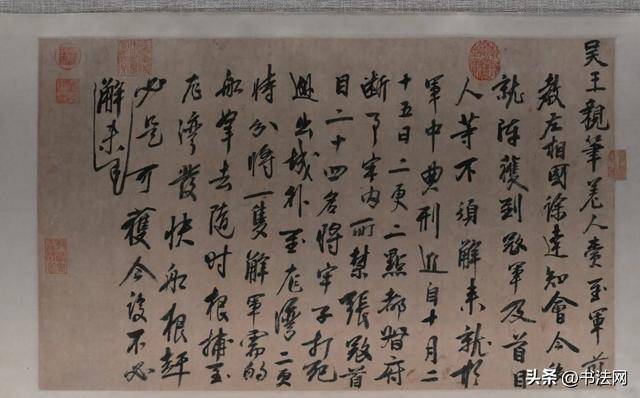 吳王親筆差人賫至軍前
教左相國徐達知會今後
就陣獲到寇軍及首目
人等不須解來就於
軍中典刑近自十月二
十五日二更二點都督府
斷了牢內所禁張寇首
目二十四名將牢子打死
越出城外至龍灣二更
時分將一隻解軍需的
船拏去隨時根捕至
龍灣發快船根趕
必是可獲今後不必
解來
头条@书法网